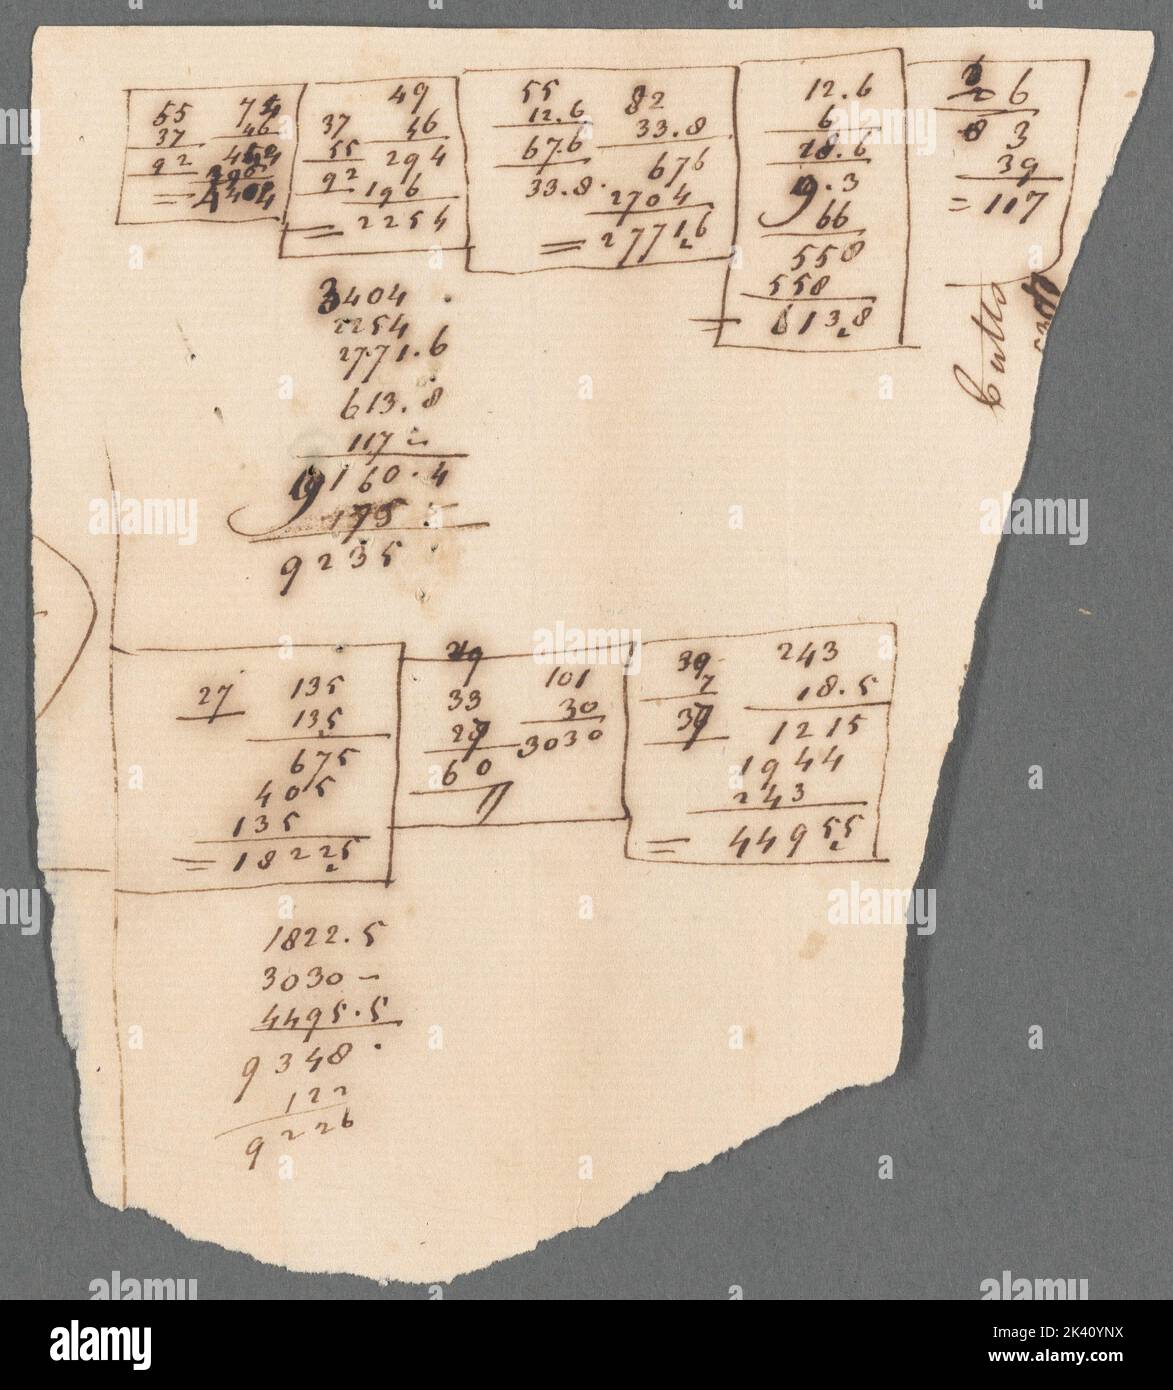 55 74
37 46
92
= 3404
49
37 46
55 294
92 196
= 2254
55 82
12.6 33.8
67.6 676
33.8. 2704
= 2771.6
12.6
6
18.6
9.3
66
558
558
= 613.8
6
3
39
= 117
3404 .
2254
2771.6
613.8
117 -
9160.4
175
9235
27 135
135
675
405
135
= 18225
33 101
30
60 3030
39 243
7 18.5
1215
1944
243
= 44955
1822.5
3030 -
4495.5
9348 .
122
9226
alamy
Image ID: 2K40YNX
www.alamy.com